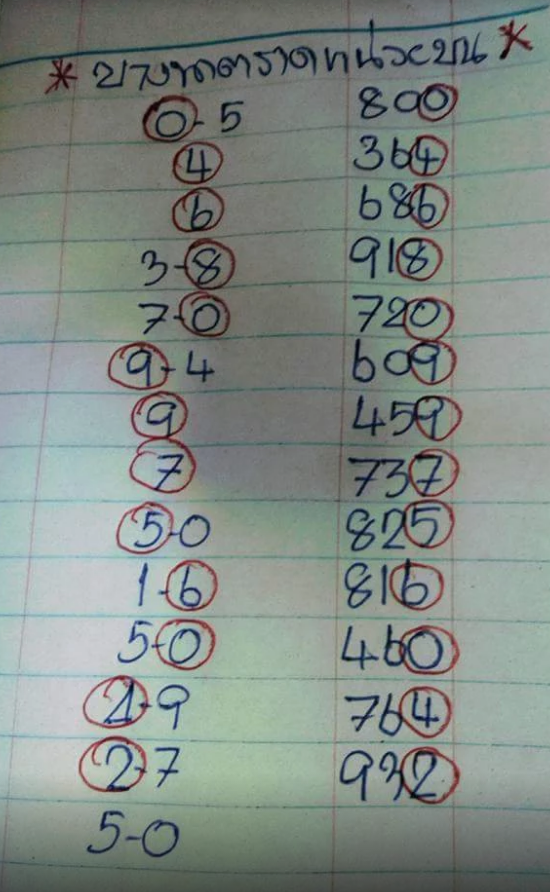 * ตราดหน่วยบน *
0-5 800
4 364
6 686
3-8 918
7-0 720
9-4 609
9 459
7 737
5-0 825
1-6 816
5-0 460
4-9 764
2-7 932
5-0